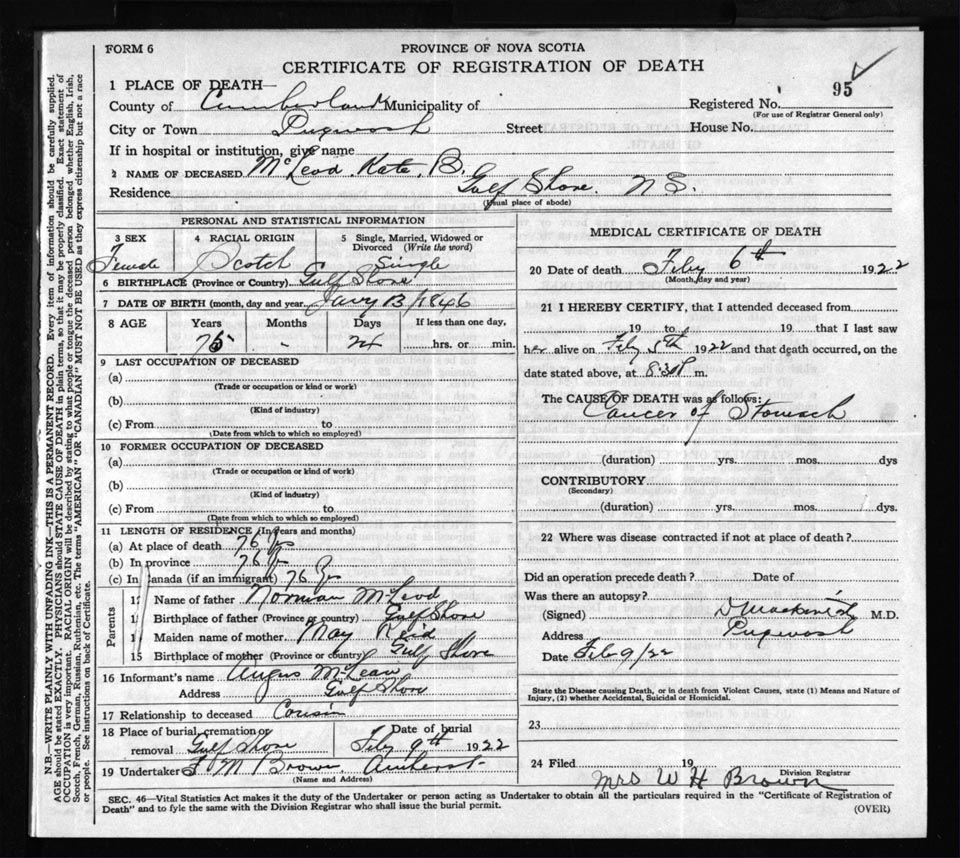 FORM 6
PROVINCE OF NOVA SCOTIA
CERTIFICATE OF REGISTRATION OF DEATH
95
1 PLACE OF DEATH—
County of Cumberland Municipality of
Registered No.
(For use of Registrar General only)
City or Town Pugwash Street House No.
If in hospital or institution, give name
2 NAME OF DECEASED McLeod, Kate, B.
Residence Gulf Shore. N S.
(Usual place of abode)
PERSONAL AND STATISTICAL INFORMATION
3 SEX
Female
4 RACIAL ORIGIN
Scotch
5 Single, Married, Widowed or
Divorced (Write the word)
Single
6 BIRTHPLACE (Province or Country) Gulf Shore
7 DATE OF BIRTH (month, day and year) Jany 13/1846
8 AGE
Years Months Days
If less than one day,
- 24 hrs. or min.
9 LAST OCCUPATION OF DECEASED
(a)
(Trade or occupation or kind or work)
(b)
(Kind of industry)
(c) From to
(Date from which to which so employed)
10 FORMER OCCUPATION OF DECEASED
(a)
(Trade or occupation or kind of work)
(b)
(Kind of industry)
(c) From to
(Date from which to which so employed)
11 LENGTH OF RESIDENCE (In years and months)
(a) At place of death 76 Yr
(b) In province 76 Yr
(c) In Canada (if an immigrant) 76 Yr
Parents
12 Name of father Norman McLeod
13 Birthplace of father (Province or country) Gulf Shore
14 Maiden name of mother May Reid
15 Birthplace of mother (Province or country) Gulf Shore
16 Informant's name Angus McLean
Address Gulf Shore
17 Relationship to deceased Cousin
18 Place of burial, cremation or
removal Gulf Shore
Date of burial
Feby 9th 1922
19 Undertaker F M Brown, Amherst
(Name and Address)
MEDICAL CERTIFICATE OF DEATH
20 Date of death Feby 6th 1922
(Month, day and year)
21 I HEREBY CERTIFY, that I attended deceased from
19 to 19 that I last saw
her alive on Feby 5th 1922 and that death occurred, on the
date stated above, at 8.30 m.
The CAUSE OF DEATH was as follows:
Cancer of Stomach
(duration) yrs. mos. dys
CONTRIBUTORY
(Secondary)
(duration) yrs. mos. dys.
22 Where was disease contracted if not at place of death?
Did an operation precede death? Date of
Was there an autopsy?
(Signed) M.D.
Address Pugwash
Date Feb 9/22
State the Disease causing Death, or in death from Violent Causes, state (1) Means and Nature of
Injury, (2) whether Accidental, Suicidal or Homicidal.
23
24 Filed 19
Mrs W H Brown
Division Registrar
SEC. 46—Vital Statistics Act makes it the duty of the Undertaker or person acting as Undertaker to obtain all the particulars required in the "Certificate of Registration of
Death" and to fyle the same with the Division Registrar who shall issue the burial permit.
(OVER)
N.B.—WRITE PLAINLY WITH UNFADING INK—THIS IS A PERMANENT RECORD. Every item of information should be carefully supplied.
AGE should be stated EXACTLY. PHYSICIANS should STATE CAUSE OF DEATH in plain terms, so that it may be properly classified. Exact statement of
OCCUPATION is very important. RACIAL ORIGIN will be described by stating to what people or tongue the deceased person belonged whether English, Irish,
Scotch, French, German, Russian, Ruthenian, etc. The terms "AMERICAN" OR "CANADIAN" MUST NOT BE USED as they express citizenship but not a race
or people. See instructions on back of Certificate.